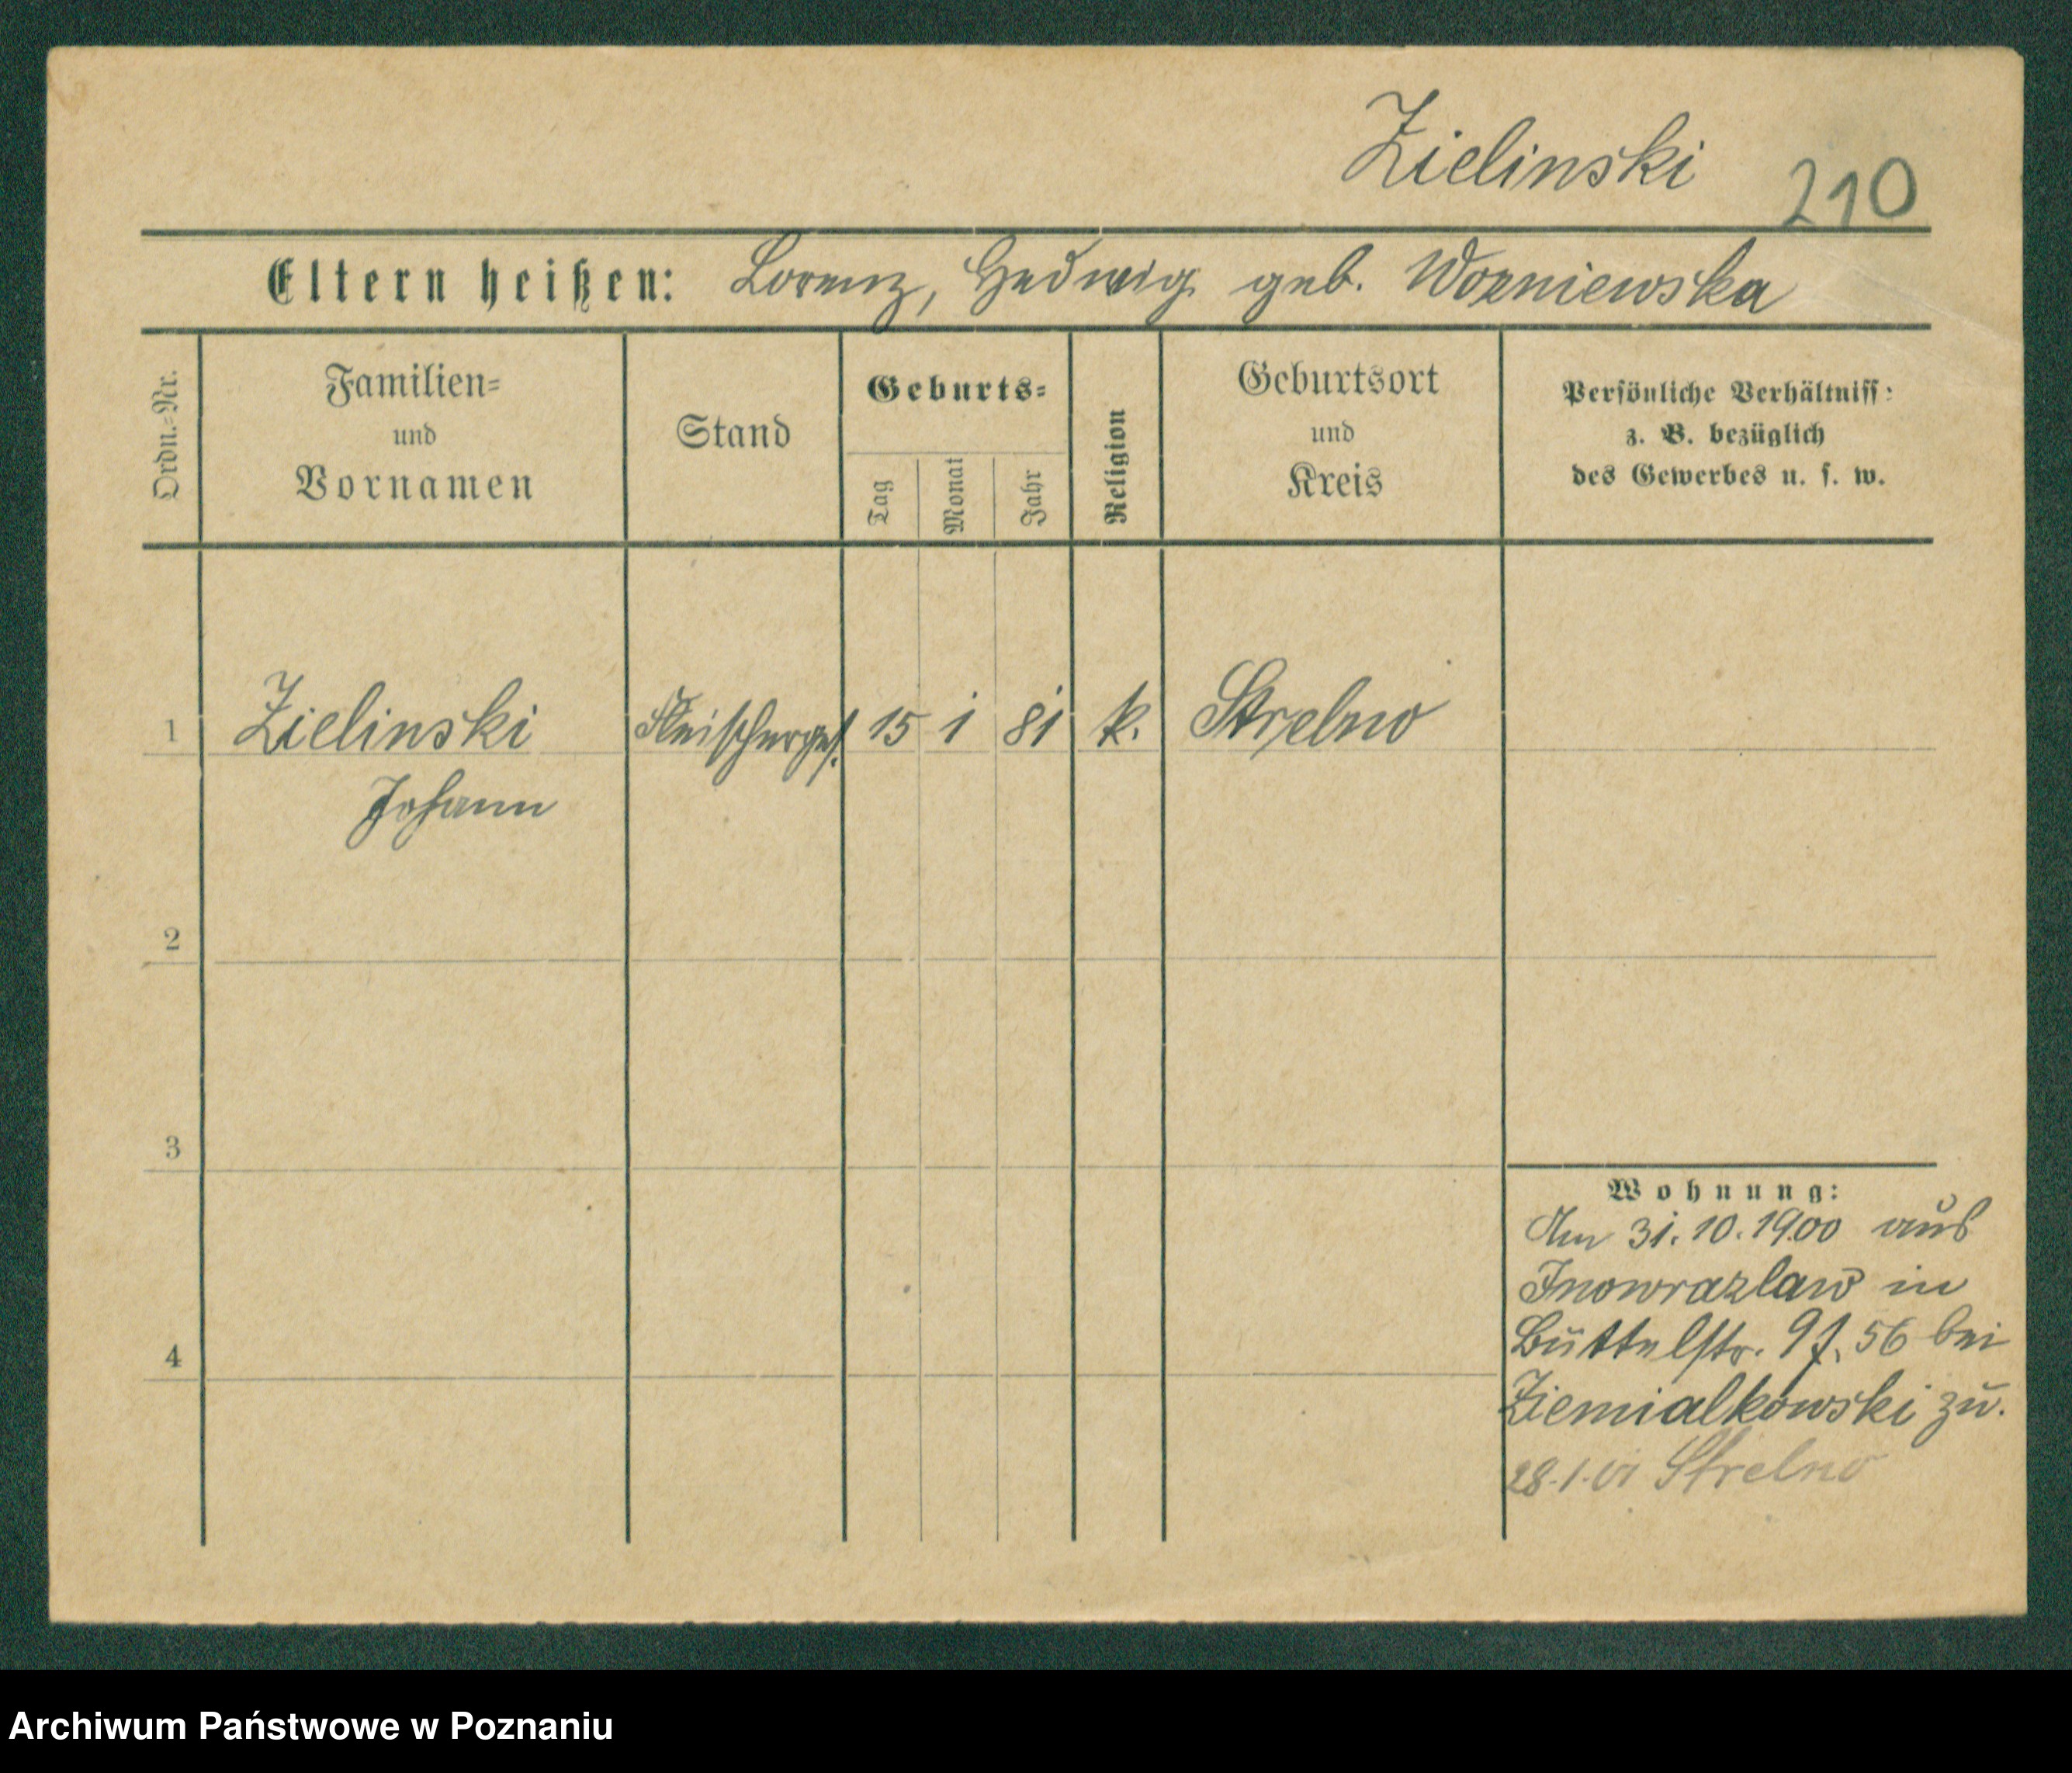 Zielinski 210
Eltern heißen: Lorenz, Hedwig geb. Wozniewska
Ordn.=Nr.
Familien=
und
Vornamen
Stand
Geburts=
Tag
Monat
Jahr
Religion
Geburtsort
und
Kreis
Persönliche Verhältniss:
z. B. bezüglich
des Gewerbes u. s. w.
1 Zielinski Fleischerges. 15 1 81 k. Strelno
Johann
2
3
4
Wohnung:
Am 31.10.1900 aus
Inowrazlaw in
Büttelstr. 9 f. 56 bei
Ziemialkowski zu.
28.1.01 Strelno
Archiwum Państwowe w Poznaniu